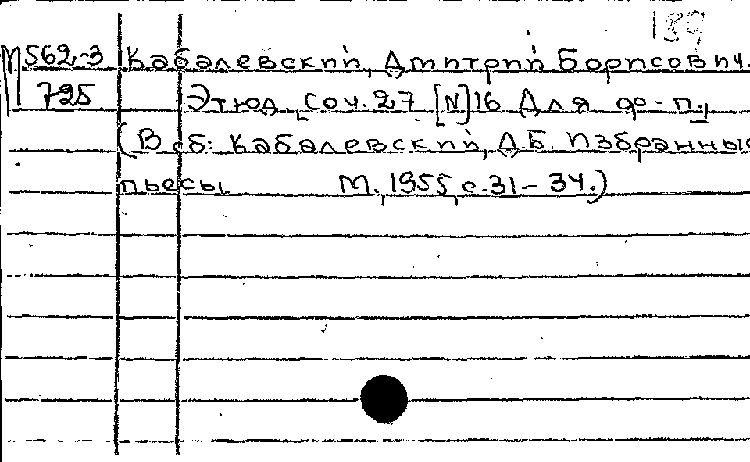 139
М 562-3 Кабалевский, Дмитрий Борисович.
725 Этюд. Соч. 27 [N] 16 Для ф-п.,
(В сб: Кабалевский, Д.Б. Избранные
пьесы. М., 1955, с. 31-34.)